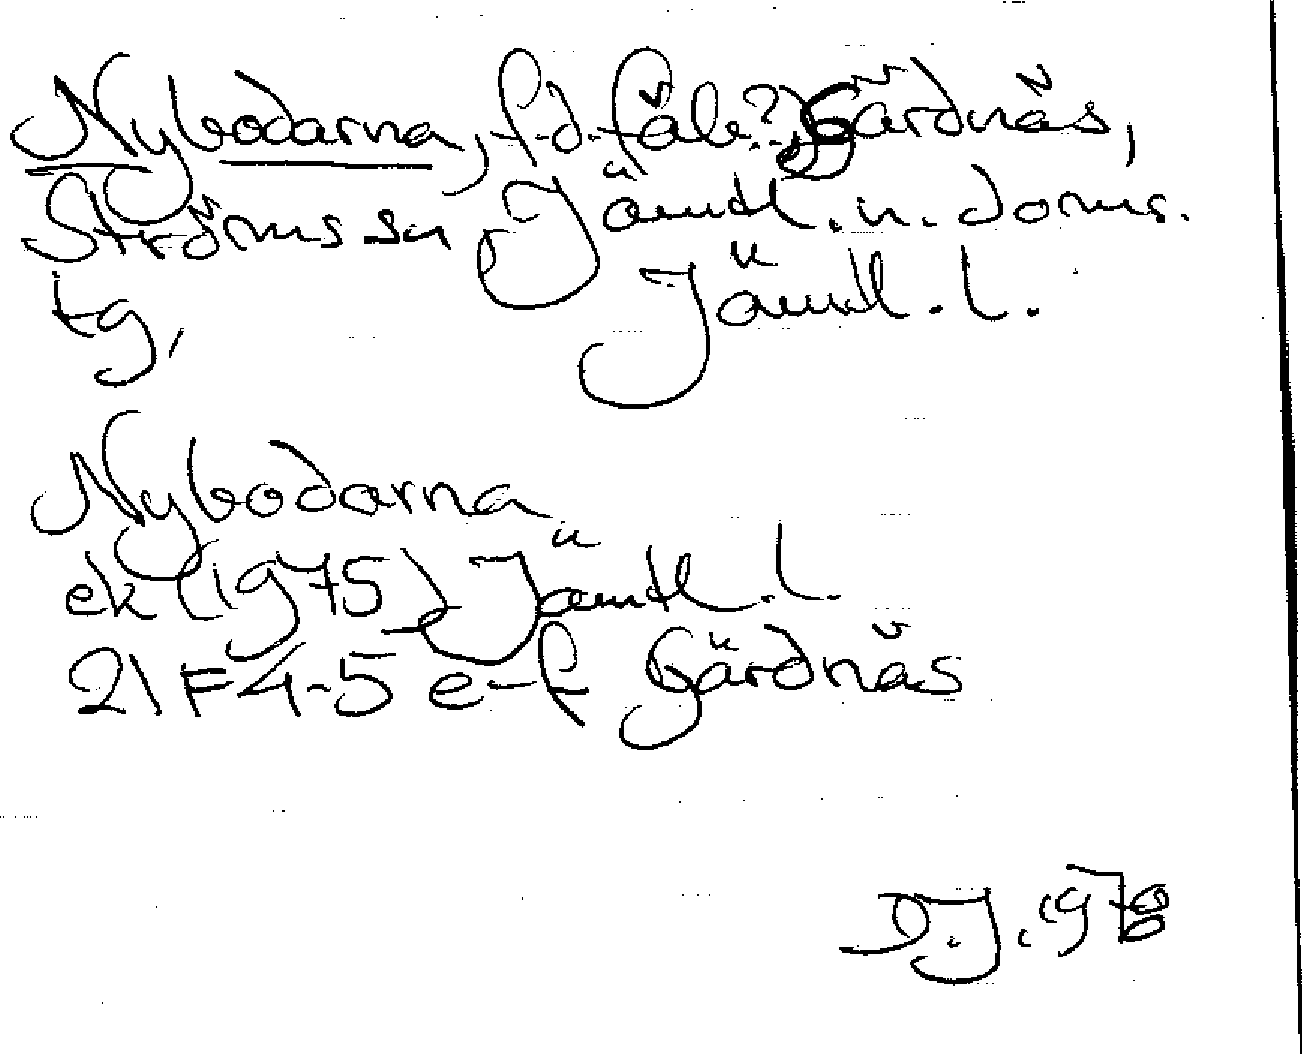 Nybodarna, f.d. fäb.?, Gärdnäs,
Ströms sn, Jämtl. n. doms.
tg, Jämtl. l.
Nybodarna
ek (1975) Jämtl. l.
21 F 4-5 e-f Gärdnäs
D.J. 1978